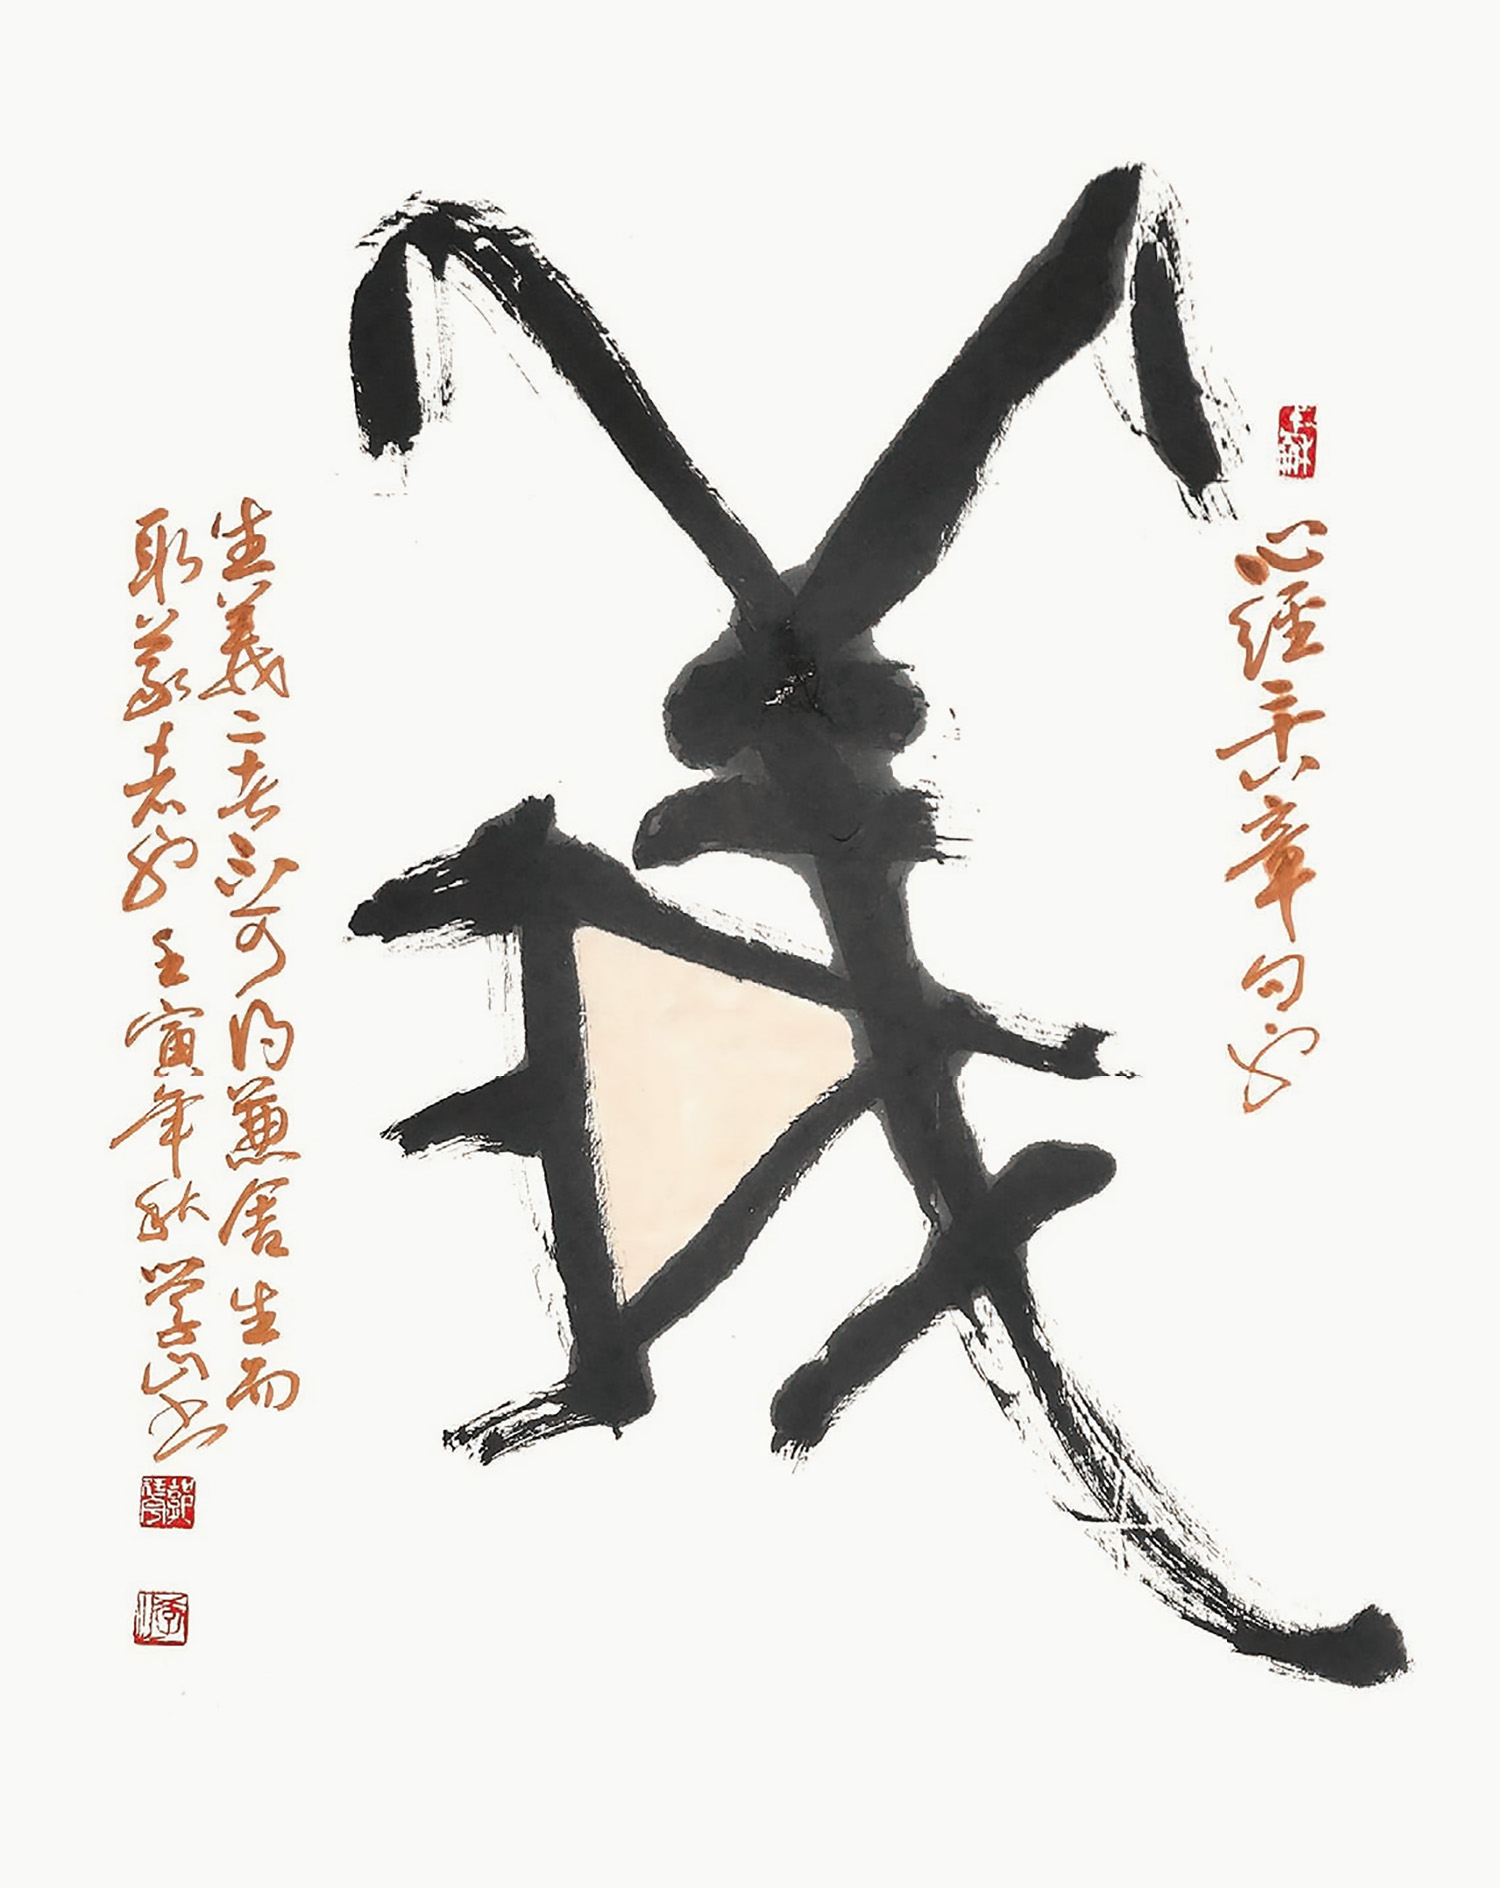 心經章句也
義
生義二者不可得兼舍生而
取義者也 壬寅年秋学山书